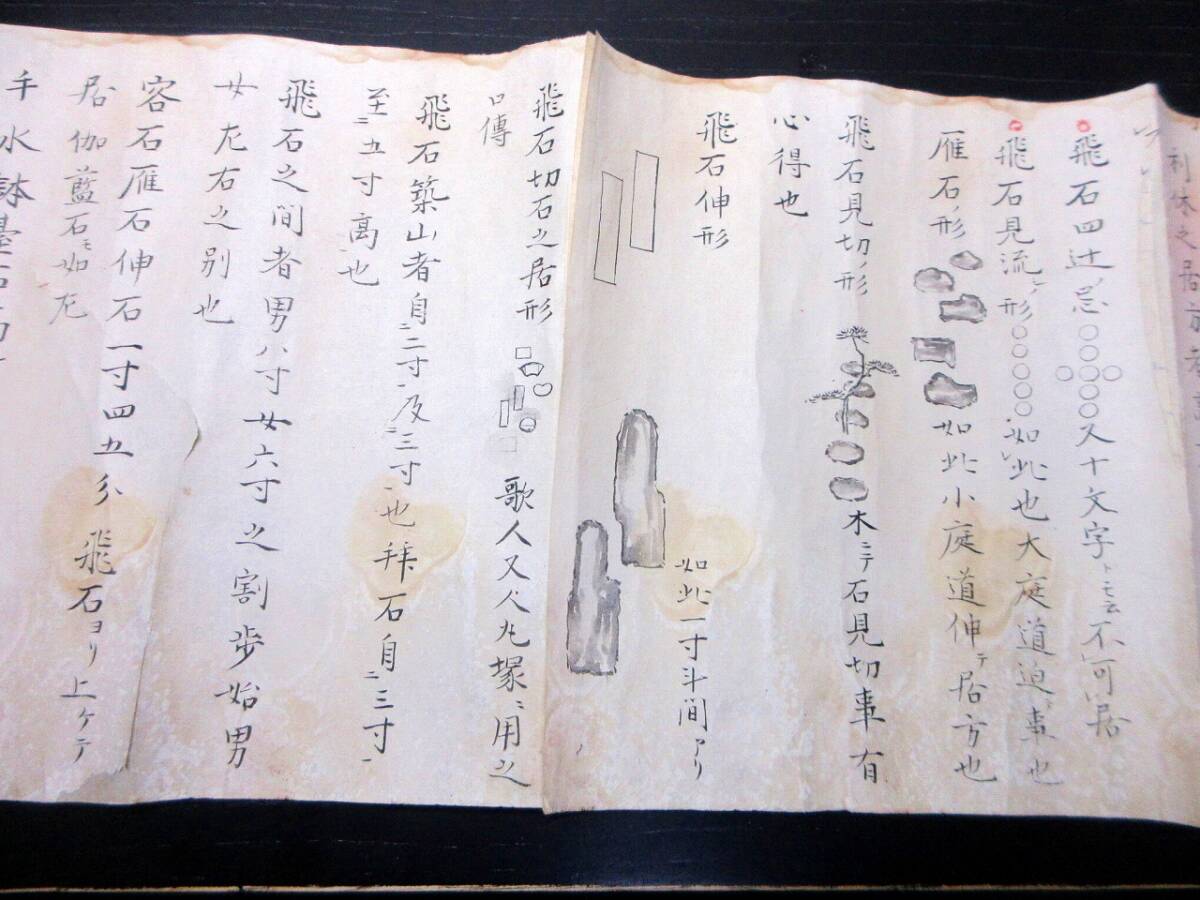 利休之居方
飛石四辻忌○○○○○○○又十文字トモ云不可居
飛石見流ノ形○○○○○○如此也大庭道迫事也
雁石ノ形 如此小庭道伸テ居方也
飛石見切ノ形 木ニテ石見切事有
心得也
飛石伸形 如此一寸斗間アリ
飛石切石之居形 歌人又八九塚ニ用之
口傳
飛石築山者自二寸及三寸也拝石自三寸
至五寸高也
飛石之間者男八寸女六寸之割歩始男
女左右之別也
容石雁石伸石一寸四五分飛石ヨリ上ケテ
居伽藍石モ如左
手水鉢臺石